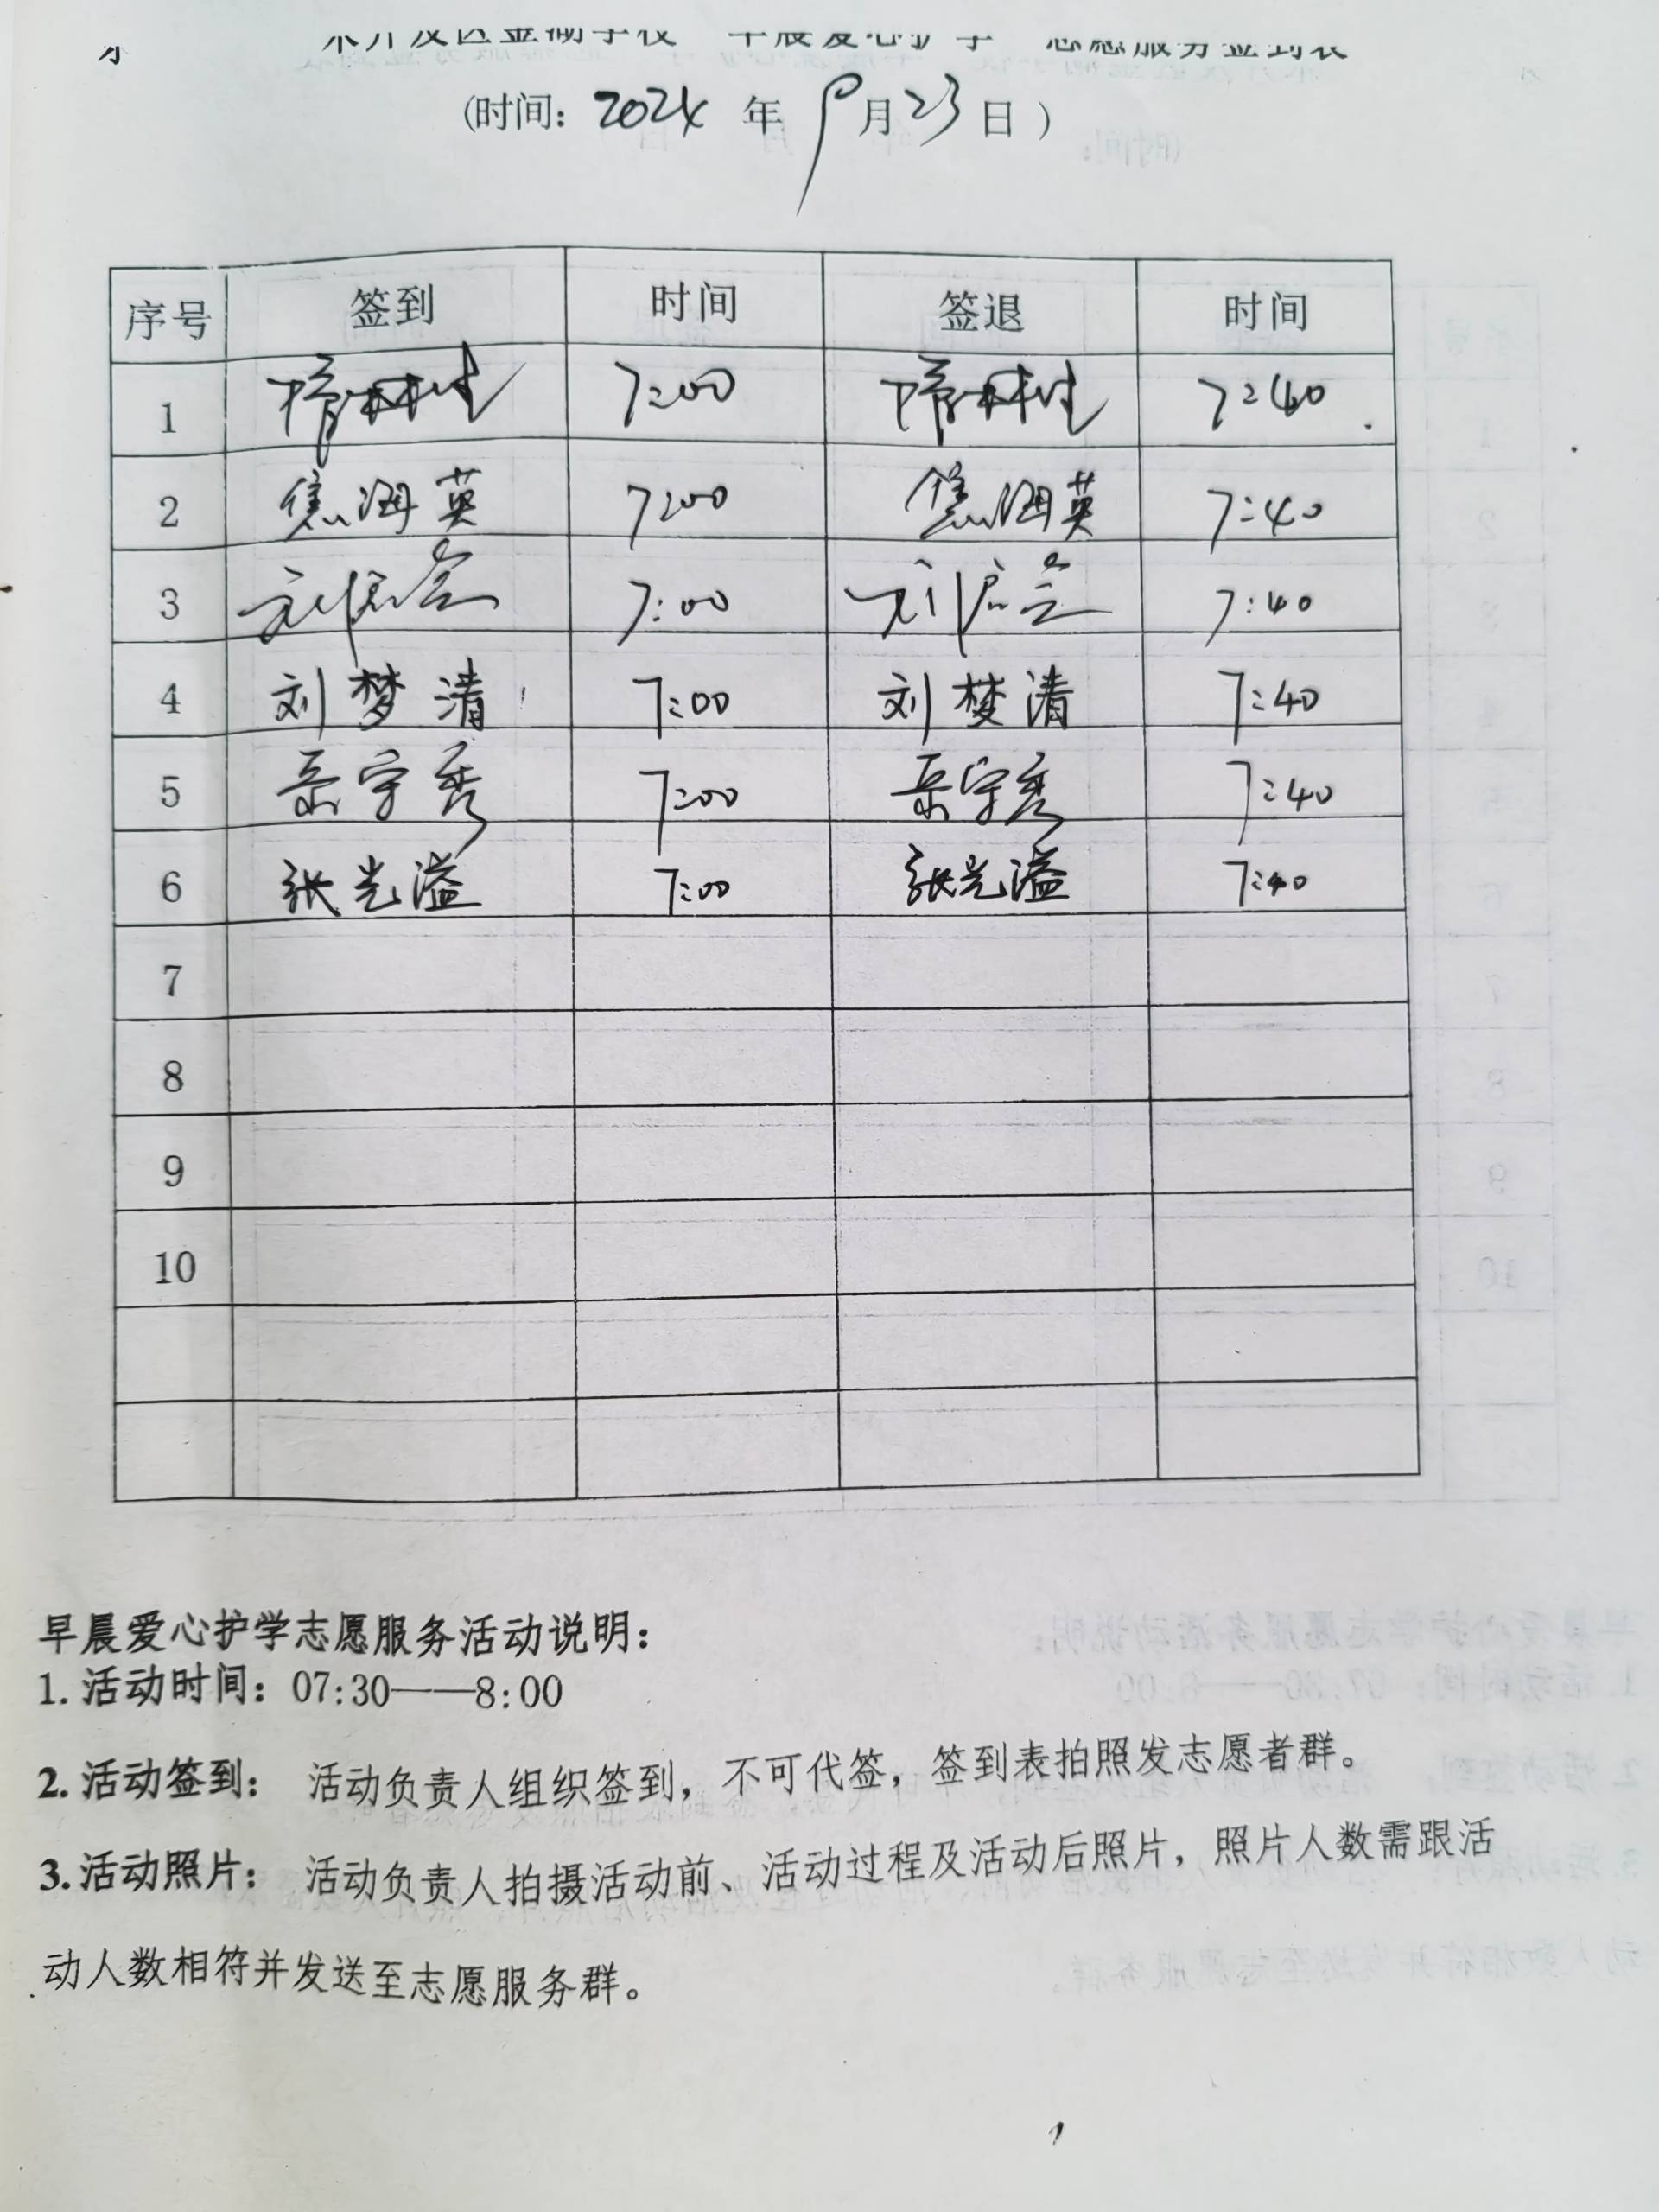 开发区金湖学校“早晨爱心护学”志愿服务签到表
(时间: 2024 年 9月23日 )
序号 签到 时间 签退 时间
1 7:00 7:40
2 焦海英 7:00 焦海英 7:40
3 7:00 7:40
4 刘梦清 7:00 刘梦清 7:40
5 岳守秀 7:00 岳守秀 7:40
6 张光溢 7:00 张光溢 7:40
7
8
9
10
早晨爱心护学志愿服务活动说明:
1. 活动时间: 07:30——8:00
2. 活动签到: 活动负责人组织签到, 不可代签, 签到表拍照发志愿者群。
3. 活动照片: 活动负责人拍摄活动前、活动过程及活动后照片, 照片人数需跟活
动人数相符并发送至志愿服务群。